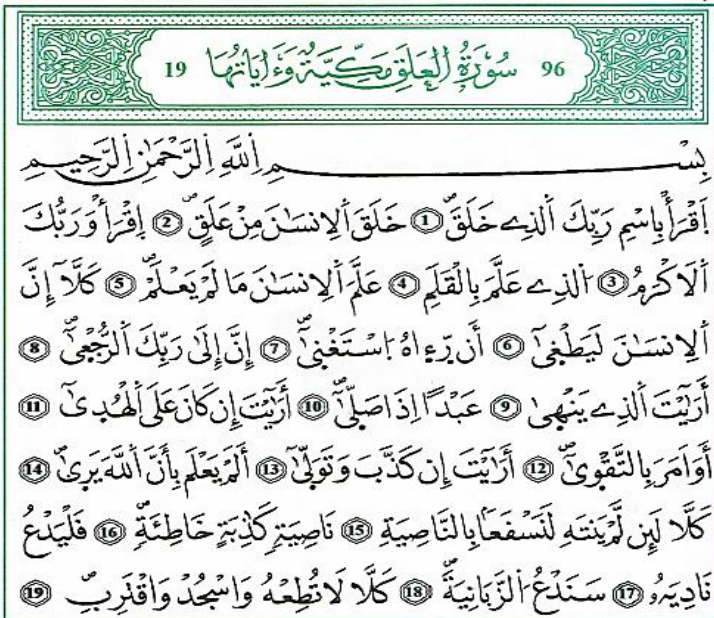 96 سُورَةُ اُ۬لْعَلَقِ مَكِّيَّةٌ وَءَايَاتُهَا 19
بِسْمِ اِ۬للَّهِ اِ۬لرَّحْمَٰنِ اِ۬لرَّحِيمِ
اِ۪قْرَأْ بِاسْمِ رَبِّكَ اَ۬لذِے خَلَقَۖ 1 خَلَقَ اَ۬لِانسَٰنَ مِنْ عَلَقٍۖ 2 اِ۪قْرَأْ وَرَبُّكَ
اَ۬لَاكْرَمُ 3 اُ۬لذِے عَلَّمَ بِالْقَلَمِ 4 عَلَّمَ اَ۬لِانسَٰنَ مَا لَمْ يَعْلَمْۖ 5 كَلَّآ إِنَّ
اَ۬لِانسَٰنَ لَيَطْغ۪ىٰٓ 6 أَن رّ۪ء۪اهُ اُ۪سْتَغْن۪ىٰٓۖ 7 إِنَّ إِلَىٰ رَبِّكَ اَ۬لرُّجْع۪ىٰٓۖ 8
أَرَٰٓيْتَ اَ۬لذِے يَنْه۪ىٰ 9 عَبْداً اِذَا صَلّ۪ىٰٓۖ 10 أَرَٰٓيْتَ إِن كَانَ عَلَى اَ۬لْهُد۪ىٰٓ 11
أَوَ اَمَرَ بِالتَّقْو۪ىٰٓۖ 12 أَرَٰٓيْتَ إِن كَذَّبَ وَتَوَلّ۪ىٰٓ 13 أَلَمْ يَعْلَم بِأَنَّ اَ۬للَّهَ يَر۪ىٰۖ 14
كَلَّا لَئِن لَّمْ يَنتَهِ لَنَسْفَعاَۢ بِالنَّاصِيَةِ 15 نَاصِيَةٖ كَٰذِبَةٍ خَاطِئَةٖۖ 16 فَلْيَدْعُ
نَادِيَهُۥ 17 سَنَدْعُ اُ۬لزَّبَانِيَةَۖ 18 كَلَّا لَا تُطِعْهُ وَاسْجُدْ وَاقْتَرِبۖ 19